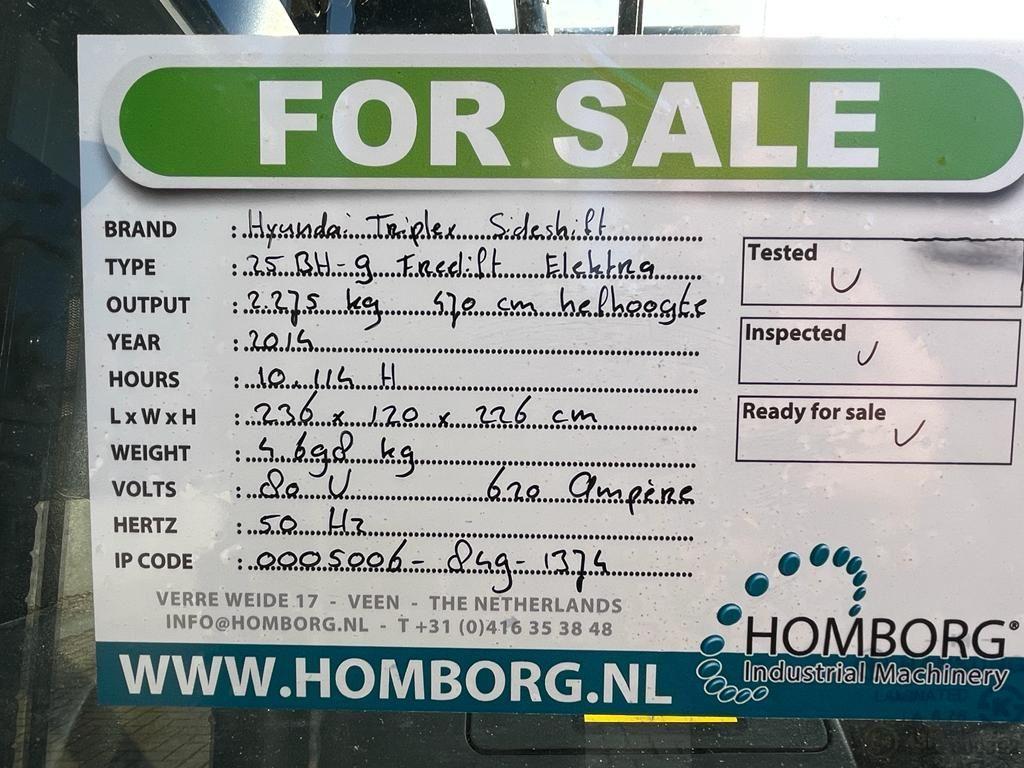 FOR SALE
BRAND : Hyundai Triplex Sideshift
TYPE : 25 BH-9 Freelift Elektra
OUTPUT : 2.275 kg 470 cm hefhoogte
YEAR : 2014
HOURS : 10.114 H
L x W x H : 236 x 120 x 226 cm
WEIGHT : 4.698 kg
VOLTS : 80 V 620 Ampère
HERTZ : 50 Hz
IP CODE : 0005006-849-1374
Tested ✓
Inspected ✓
Ready for sale ✓
VERRE WEIDE 17 - VEEN - THE NETHERLANDS
INFO@HOMBORG.NL - T +31 (0)416 35 38 48
WWW.HOMBORG.NL
HOMBORG®
Industrial Machinery
LAMINATED